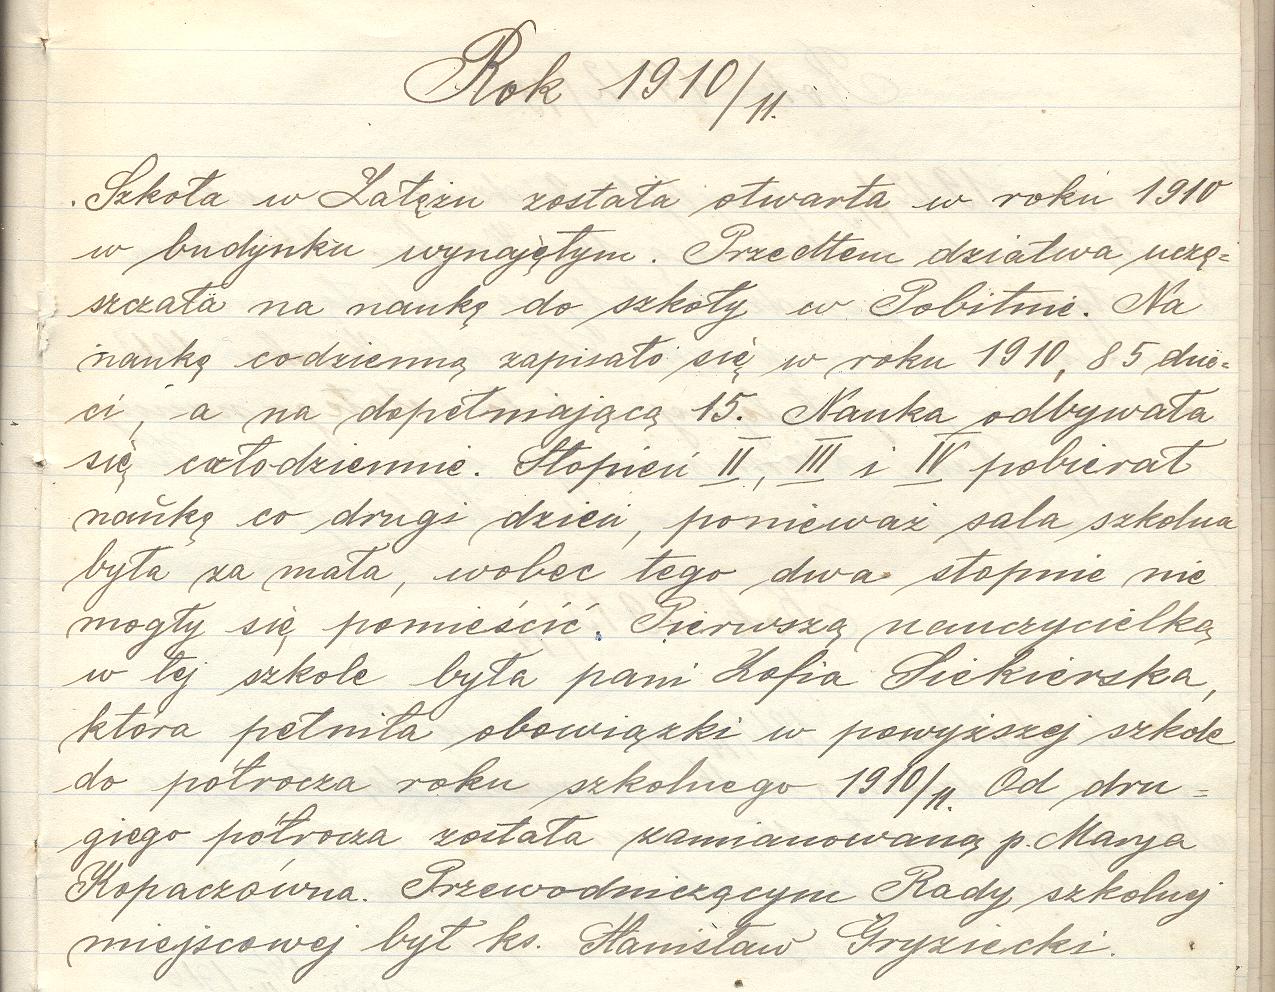 Rok 1910/11.
Szkoła w Załężu została otwarta w roku 1910
w budynku wynajętym. Przedtem dziatwa uczę=
szczała na naukę do szkoły w Pobitnie. Na
naukę codzienną zapisało się w roku 1910, 85 dzie=
ci, a na dopełniającą 15. Nauka odbywała
się całodziennie. Stopień II, III i IV pobierał
naukę co drugi dzień, ponieważ sala szkolna
była za mała, wobec tego dwa stopnie nie
mogły się pomieścić. Pierwszą nauczycielką
w tej szkole była pani Zofia Siekierska,
ktora pełniła obowiązki w powyższej szkole
do półrocza roku szkolnego 1910/11. Od dru=
giego półrocza została zamianowaną p. Marya
Kopaczówna. Przewodniczącym Rady szkolnej
miejscowej był ks. Stanisław Gryziecki.